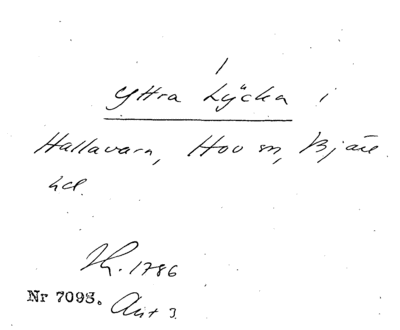 Yttra Lÿcka i
Hallavara, Hov sn, Bjäre
hd.
1786
Nr 7093. Akt 3